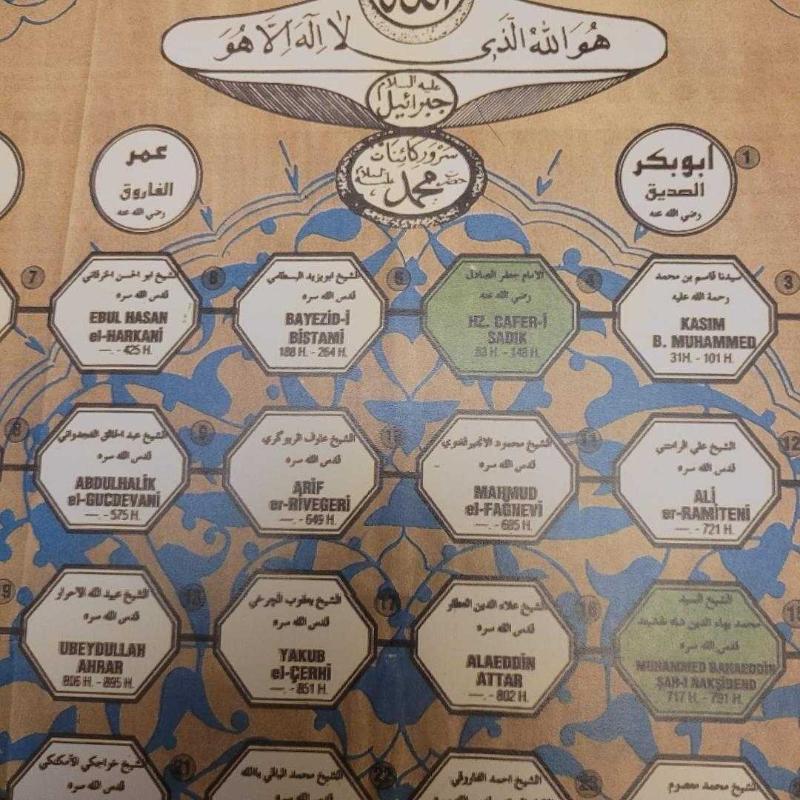 الله
هُوَ اللهُ الَّذِي لَا إِلَهَ إِلَّا هُوَ
عليه السلام
جبرائيل
سرور كائنات
حضرت محمد عليه السلام
عمر
الفاروق
رضي الله عنه
ابوبكر
الصديق
رضي الله عنه
1
3
سيدنا قاسم بن محمد
رحمة الله عليه
KASIM
B. MUHAMMED
31H. - 101 H.
4
الامام جعفر الصادق
رضي الله عنه
HZ. CAFER-İ
SADIK
83 H. - 148 H.
5
الشيخ ابويزيد البسطامي
قدس الله سره
BAYEZİD-İ
BİSTAMİ
188 H. - 264 H.
6
الشيخ ابو الحسن الخرقاني
قدس الله سره
EBUL HASAN
el-HARKANİ
—. - 425 H.
7
8
الشيخ عبد الخالق الغجدواني
قدس الله سره
ABDULHALİK
el-GUCDEVANİ
—. - 575 H.
9
الشيخ عارف الريوكري
قدس الله سره
ARİF
er-RİVEGERİ
—. - 649 H.
10
الشيخ محمود الانجيرفغنوي
قدس الله سره
MAHMUD
el-FAĞNEVİ
—. - 685 H.
11
الشيخ علي الرامتني
قدس الله سره
ALİ
er-RAMİTENİ
—. - 721 H.
12
15
الشيخ السيد
محمد بهاء الدين شاه نقشبند
قدس الله سره
MUHAMMED BAHAEDDİN
ŞAH-I NAKŞİBEND
717 H. - 791 H.
16
الشيخ علاء الدين العطار
قدس الله سره
ALAEDDİN
ATTAR
—. - 802 H.
17
الشيخ يعقوب الچرخي
قدس الله سره
YAKUB
el-ÇERHİ
—. - 851 H.
18
الشيخ عبيد الله الاحرار
قدس الله سره
UBEYDULLAH
AHRAR
806 H. - 895 H.
19
21
22
23
الشيخ خواجكي الامكنكي
قدس الله سره
الشيخ محمد الباقي بالله
قدس الله سره
الشيخ احمد الفاروقي
الشيخ محمد معصوم